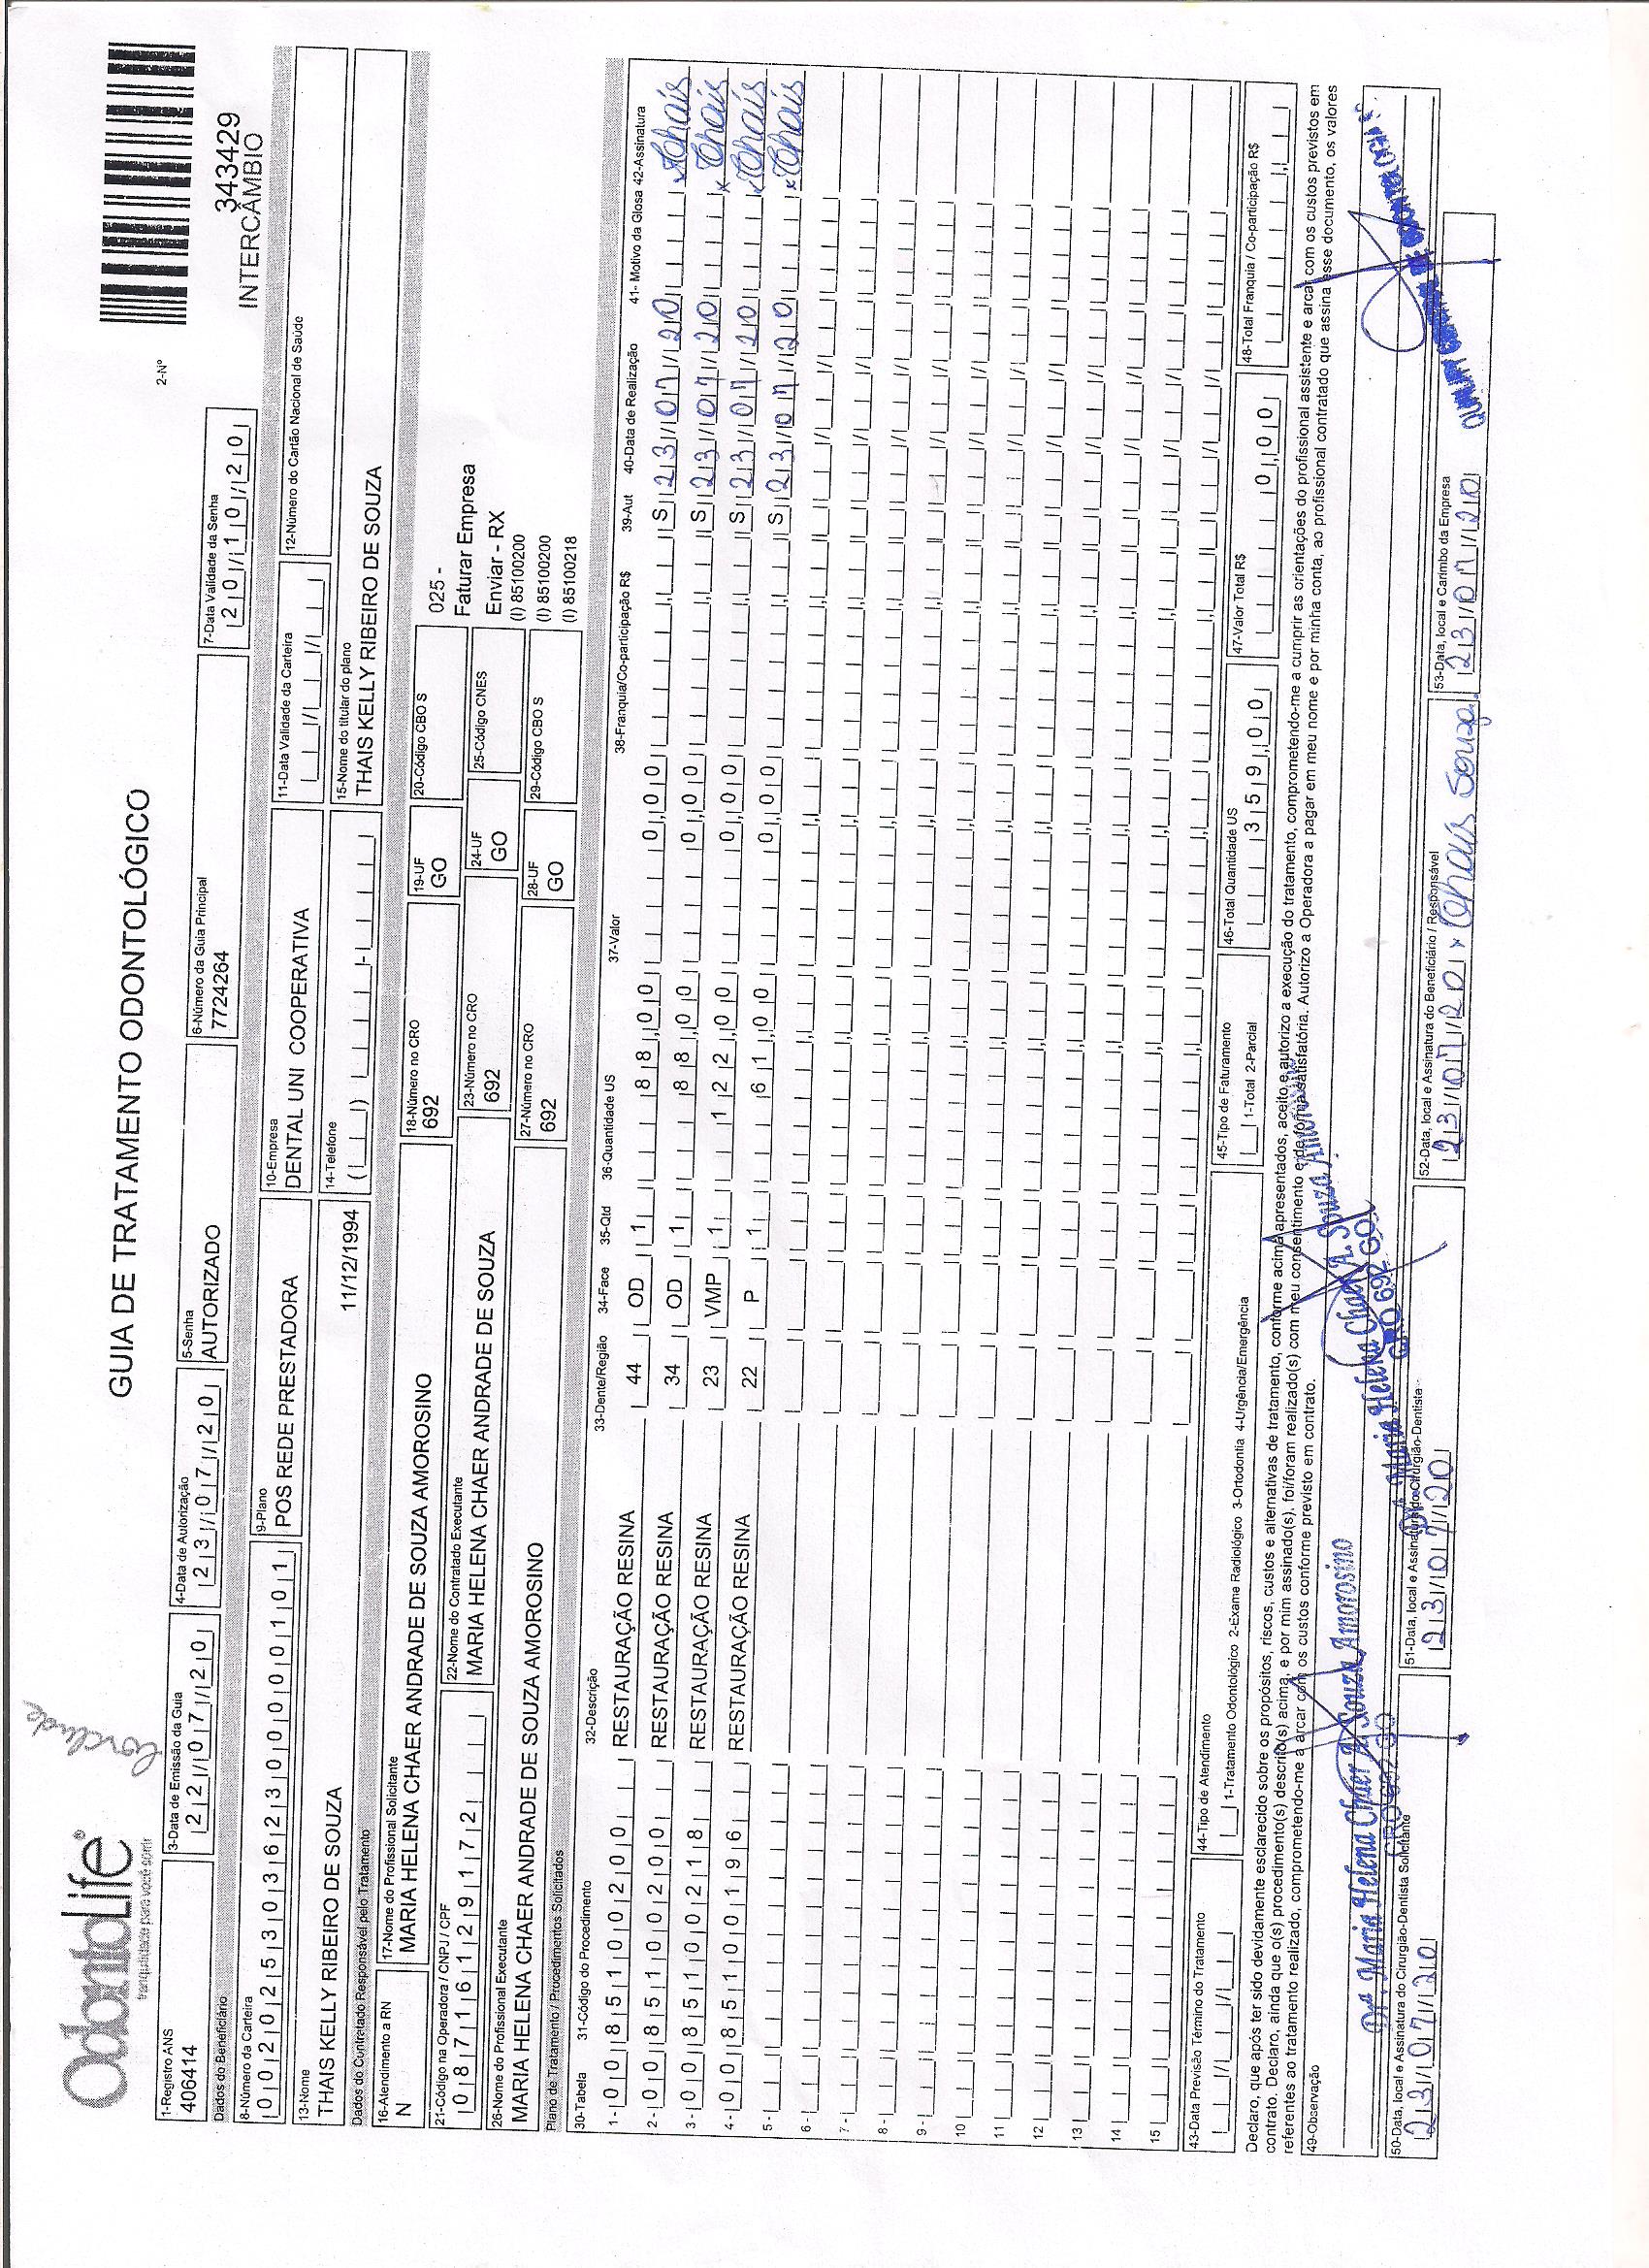 OdontoLife®
tranquilidade para você sorrir
GUIA DE TRATAMENTO ODONTOLÓGICO
2-Nº
343429
INTERCÂMBIO
1-Registro ANS
406414
3-Data de Emissão da Guia
22/07/20
4-Data de Autorização
23/07/20
5-Senha
AUTORIZADO
6-Número da Guia Principal
7724264
7-Data Validade da Senha
20/10/20
Dados do Beneficiário
8-Número da Carteira
00202530362300000101
9-Plano
POS REDE PRESTADORA
10-Empresa
DENTAL UNI COOPERATIVA
11-Data Validade da Carteira
12-Número do Cartão Nacional de Saúde
13-Nome
THAIS KELLY RIBEIRO DE SOUZA
11/12/1994
14-Telefone
15-Nome do titular do plano
THAIS KELLY RIBEIRO DE SOUZA
Dados do Contratado Responsável pelo Tratamento
16-Atendimento a RN
N
17-Nome do Profissional Solicitante
MARIA HELENA CHAER ANDRADE DE SOUZA AMOROSINO
18-Número no CRO
692
19-UF
GO
20-Código CBO S
025 -
Faturar Empresa
Enviar - RX
(I) 85100200
(I) 85100200
(I) 85100218
21-Código na Operadora / CNPJ / CPF
08716129172
22-Nome do Contratado Executante
MARIA HELENA CHAER ANDRADE DE SOUZA
23-Número no CRO
692
24-UF
GO
25-Código CNES
26-Nome do Profissional Executante
MARIA HELENA CHAER ANDRADE DE SOUZA AMOROSINO
27-Número no CRO
692
28-UF
GO
29-Código CBO S
Plano de Tratamento / Procedimentos Solicitados
30-Tabela 31-Código do Procedimento 32-Descrição 33-Dente/Região 34-Face 35-Qtd 36-Quantidade US 37-Valor 38-Franquia/Co-participação R$ 39-Aut 40-Data de Realização 41- Motivo da Glosa 42-Assinatura
1 - 00 85100200 RESTAURAÇÃO RESINA 44 OD 1 88,00 0,00 S 23/07/20 x Thais
2 - 00 85100200 RESTAURAÇÃO RESINA 34 OD 1 88,00 0,00 S 23/07/20 x Thais
3 - 00 85100218 RESTAURAÇÃO RESINA 23 VMP 1 122,00 0,00 S 23/07/20 x Thais
4 - 00 85100196 RESTAURAÇÃO RESINA 22 P 1 61,00 0,00 S 23/07/20 x Thais
5 -
6 -
7 -
8 -
9 -
10
11
12
13
14
15
43-Data Previsão Término do Tratamento
44-Tipo de Atendimento
1-Tratamento Odontológico 2-Exame Radiológico 3-Ortodontia 4-Urgência/Emergência
45-Tipo de Faturamento
1-Total 2-Parcial
46-Total Quantidade US
359,00
47-Valor Total R$
0,00
48-Total Franquia / Co-participação R$
Declaro, que após ter sido devidamente esclarecido sobre os propósitos, riscos, custos e alternativas de tratamento, conforme acima apresentados, aceito e autorizo a execução do tratamento, comprometendo-me a cumprir as orientações do profissional assistente e arcar com os custos previstos em
contrato. Declaro, ainda que o(s) procedimento(s) descrito(s) acima, e por mim assinado(s), foi/foram realizado(s) com meu consentimento e de forma satisfatória. Autorizo a Operadora a pagar em meu nome e por minha conta, ao profissional contratado que assina esse documento, os valores
referentes ao tratamento realizado, comprometendo-me a arcar com os custos conforme previsto em contrato.
49-Observação
Drª. Maria Helena Chaer A. Souza Amorosino
CRO 692 GO
Drª. Maria Helena Chaer A. Souza Amorosino
CRO 692 GO
50-Data, local e Assinatura do Cirurgião-Dentista Solicitante
23/07/20
51-Data, local e Assinatura do Cirurgião-Dentista
23/07/20
52-Data, local e Assinatura do Beneficiário / Responsável
23/07/20 x Thais Souza
53-Data, local e Carimbo da Empresa
23/07/20